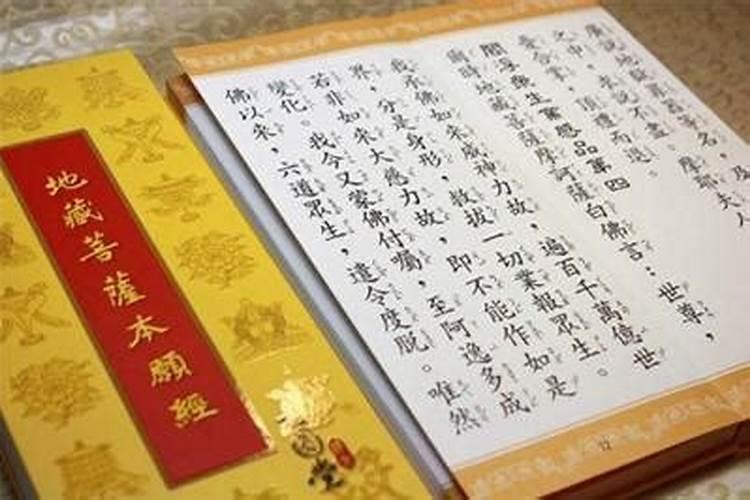 地藏菩薩本願經
廣說地獄罪報等名，及
之中，求說不盡。摩耶夫人
愁憂合掌，頂禮而退。
閻浮眾生業感品第四
爾時地藏菩薩摩訶薩白佛言：世尊，
我承佛如來威神力故，遍百千萬億世
界，分是身形，救拔一切業報眾生。
若非如來大慈力故，即不能作如是
變化。我今又蒙佛付囑，至阿逸多成
佛以來，六道眾生，遣令度脫。唯然